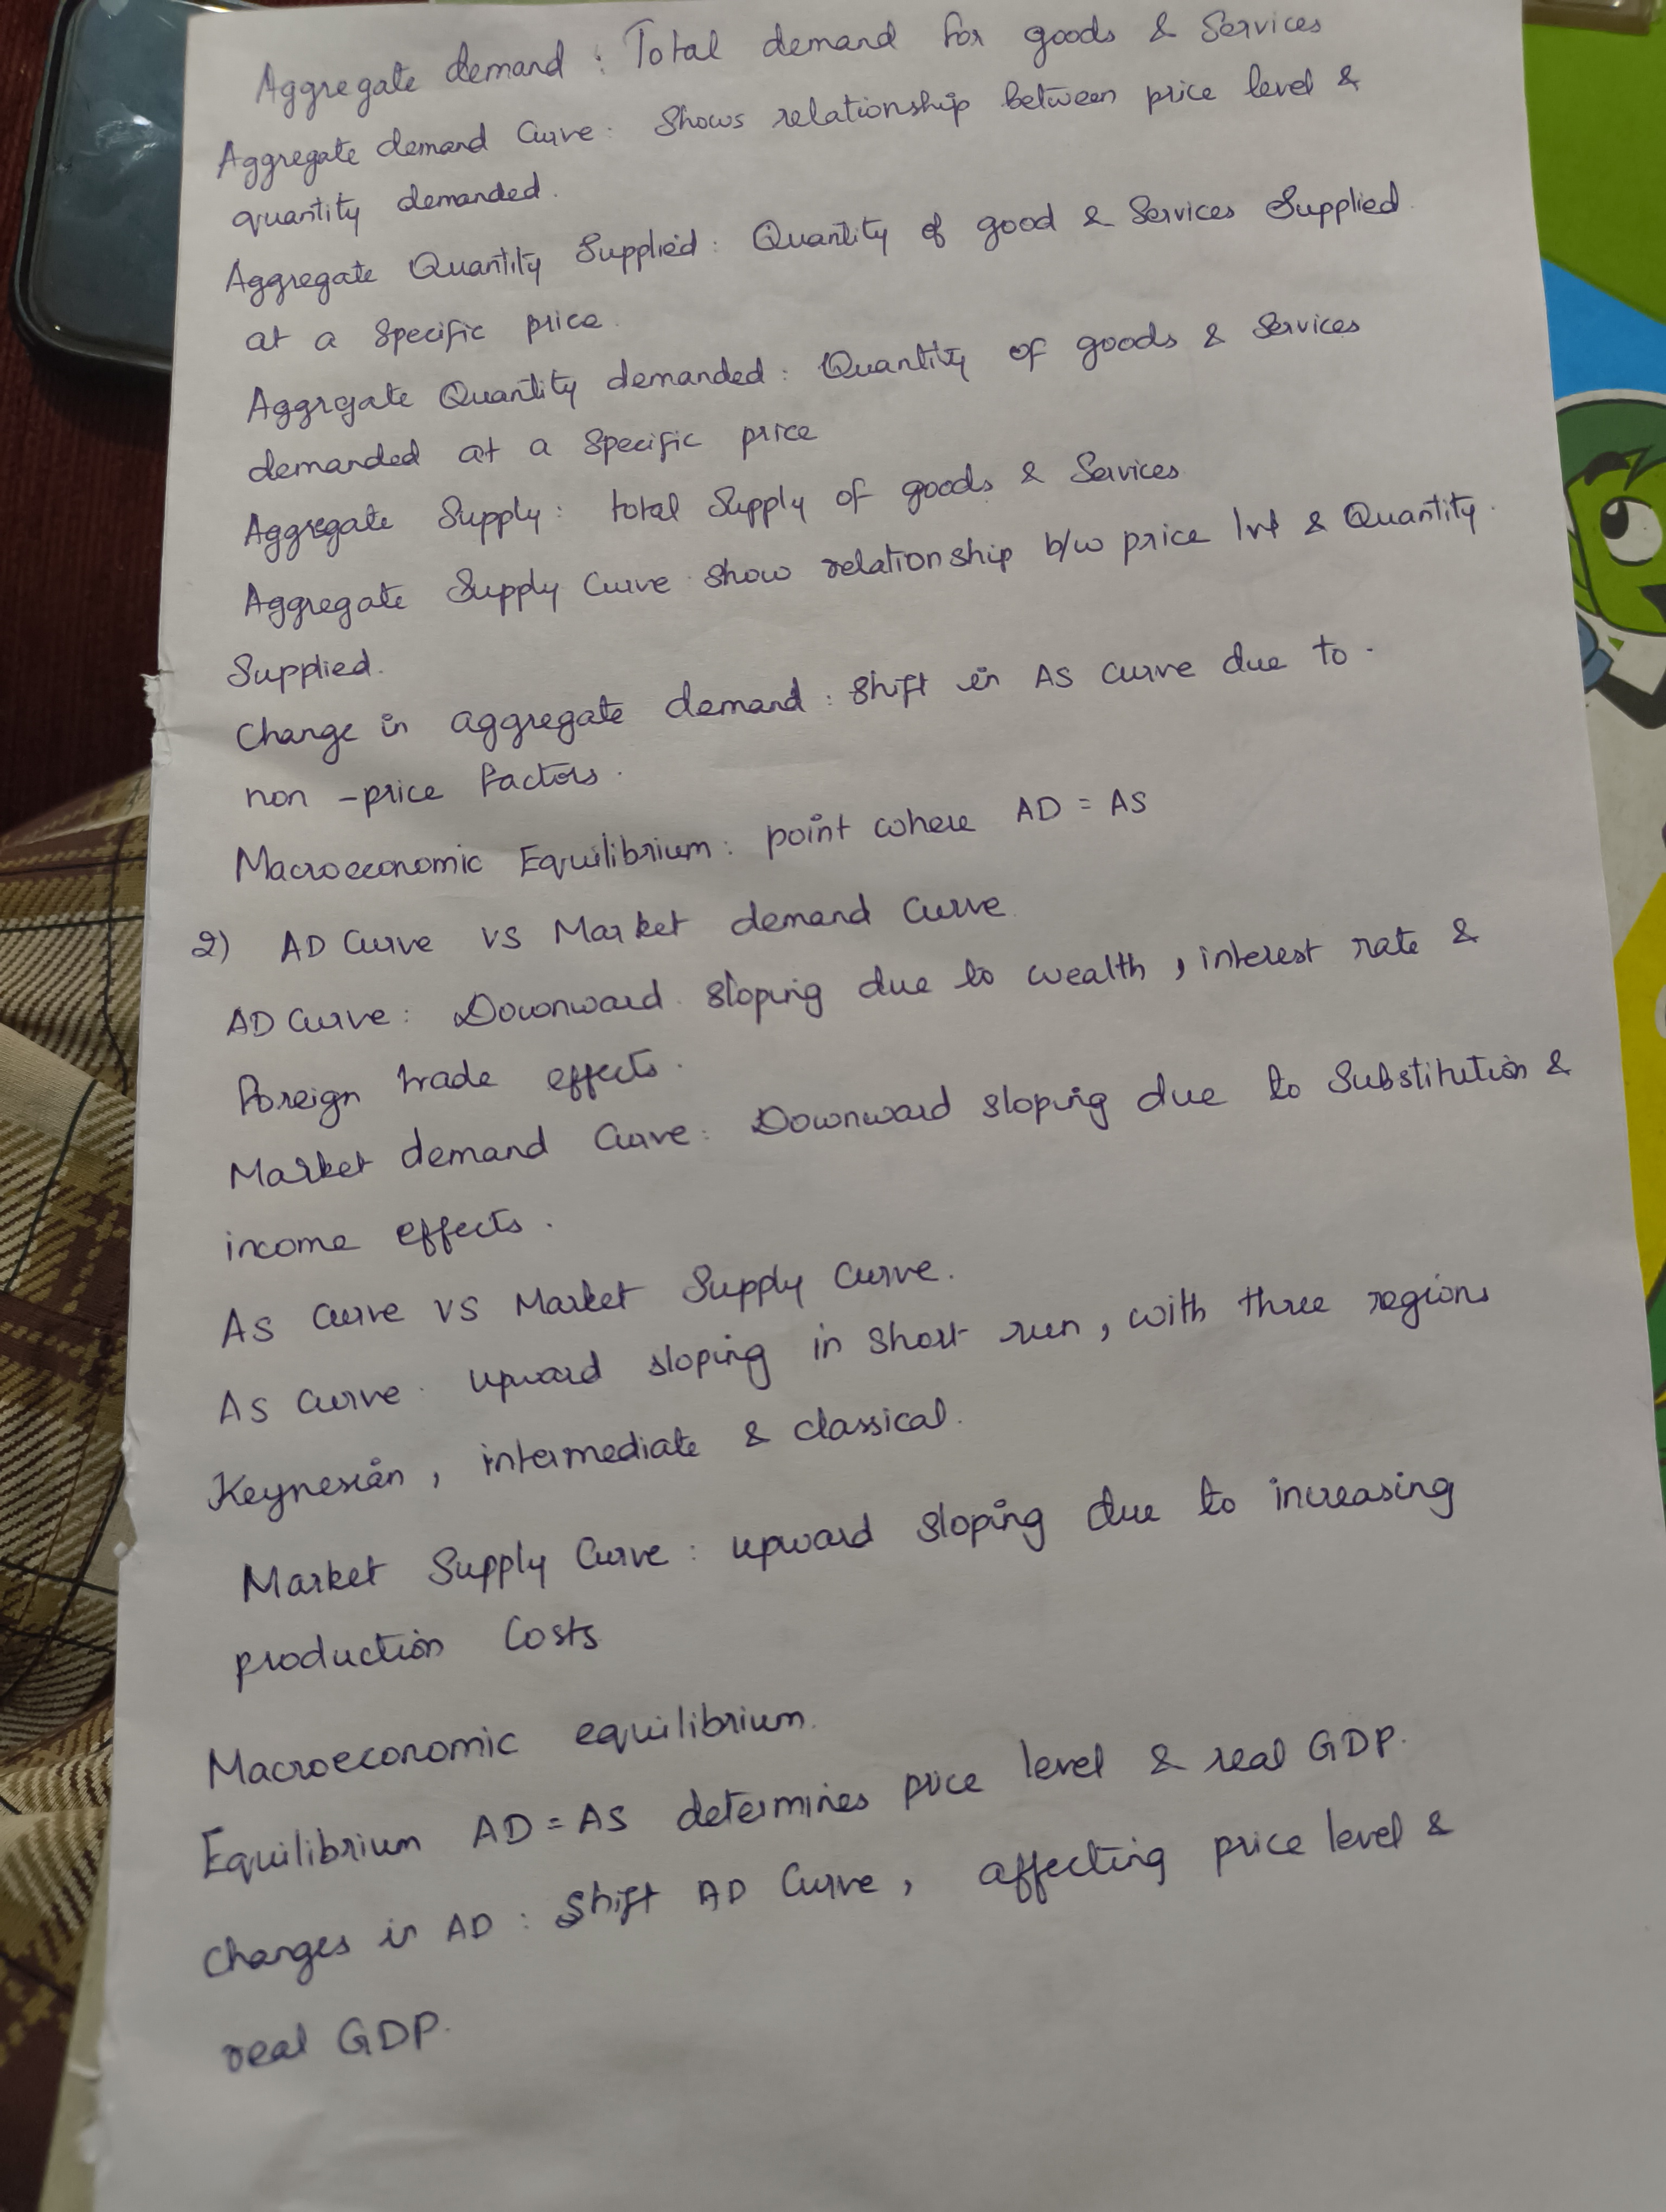 Aggregate demand : Total demand for goods & Services
Aggregate demand Curve : Shows relationship between price level &
quantity demanded.
Aggregate Quantity Supplied : Quantity of good & Services Supplied
at a Specific price.
Aggrgate Quantity demanded : Quantity of goods & Services
demanded at a Specific price
Aggregate Supply : total Supply of goods & Services
Aggregate Supply Curve show relationship b/w price lvl & Quantity
Supplied.
Change in aggregate demand : Shift in AS curve due to
non - price factors.
Macroeconomic Equilibrium : point where AD = AS
2) AD Curve vs Market demand Curve
AD Curve : Downward sloping due to wealth , interest rate &
Foreign trade effects.
Market demand Curve : Downward sloping due to Substitution &
income effects.
As curve vs Market Supply Curve.
As curve . upward sloping in short run , with three regions
Keynesian , intermediate & classical.
Market Supply Curve : upward sloping due to increasing
production Costs
Macroeconomic equilibrium.
Equilibrium AD = AS determines price level & real GDP.
Changes in AD : Shift AD Curve , affecting price level &
real GDP.